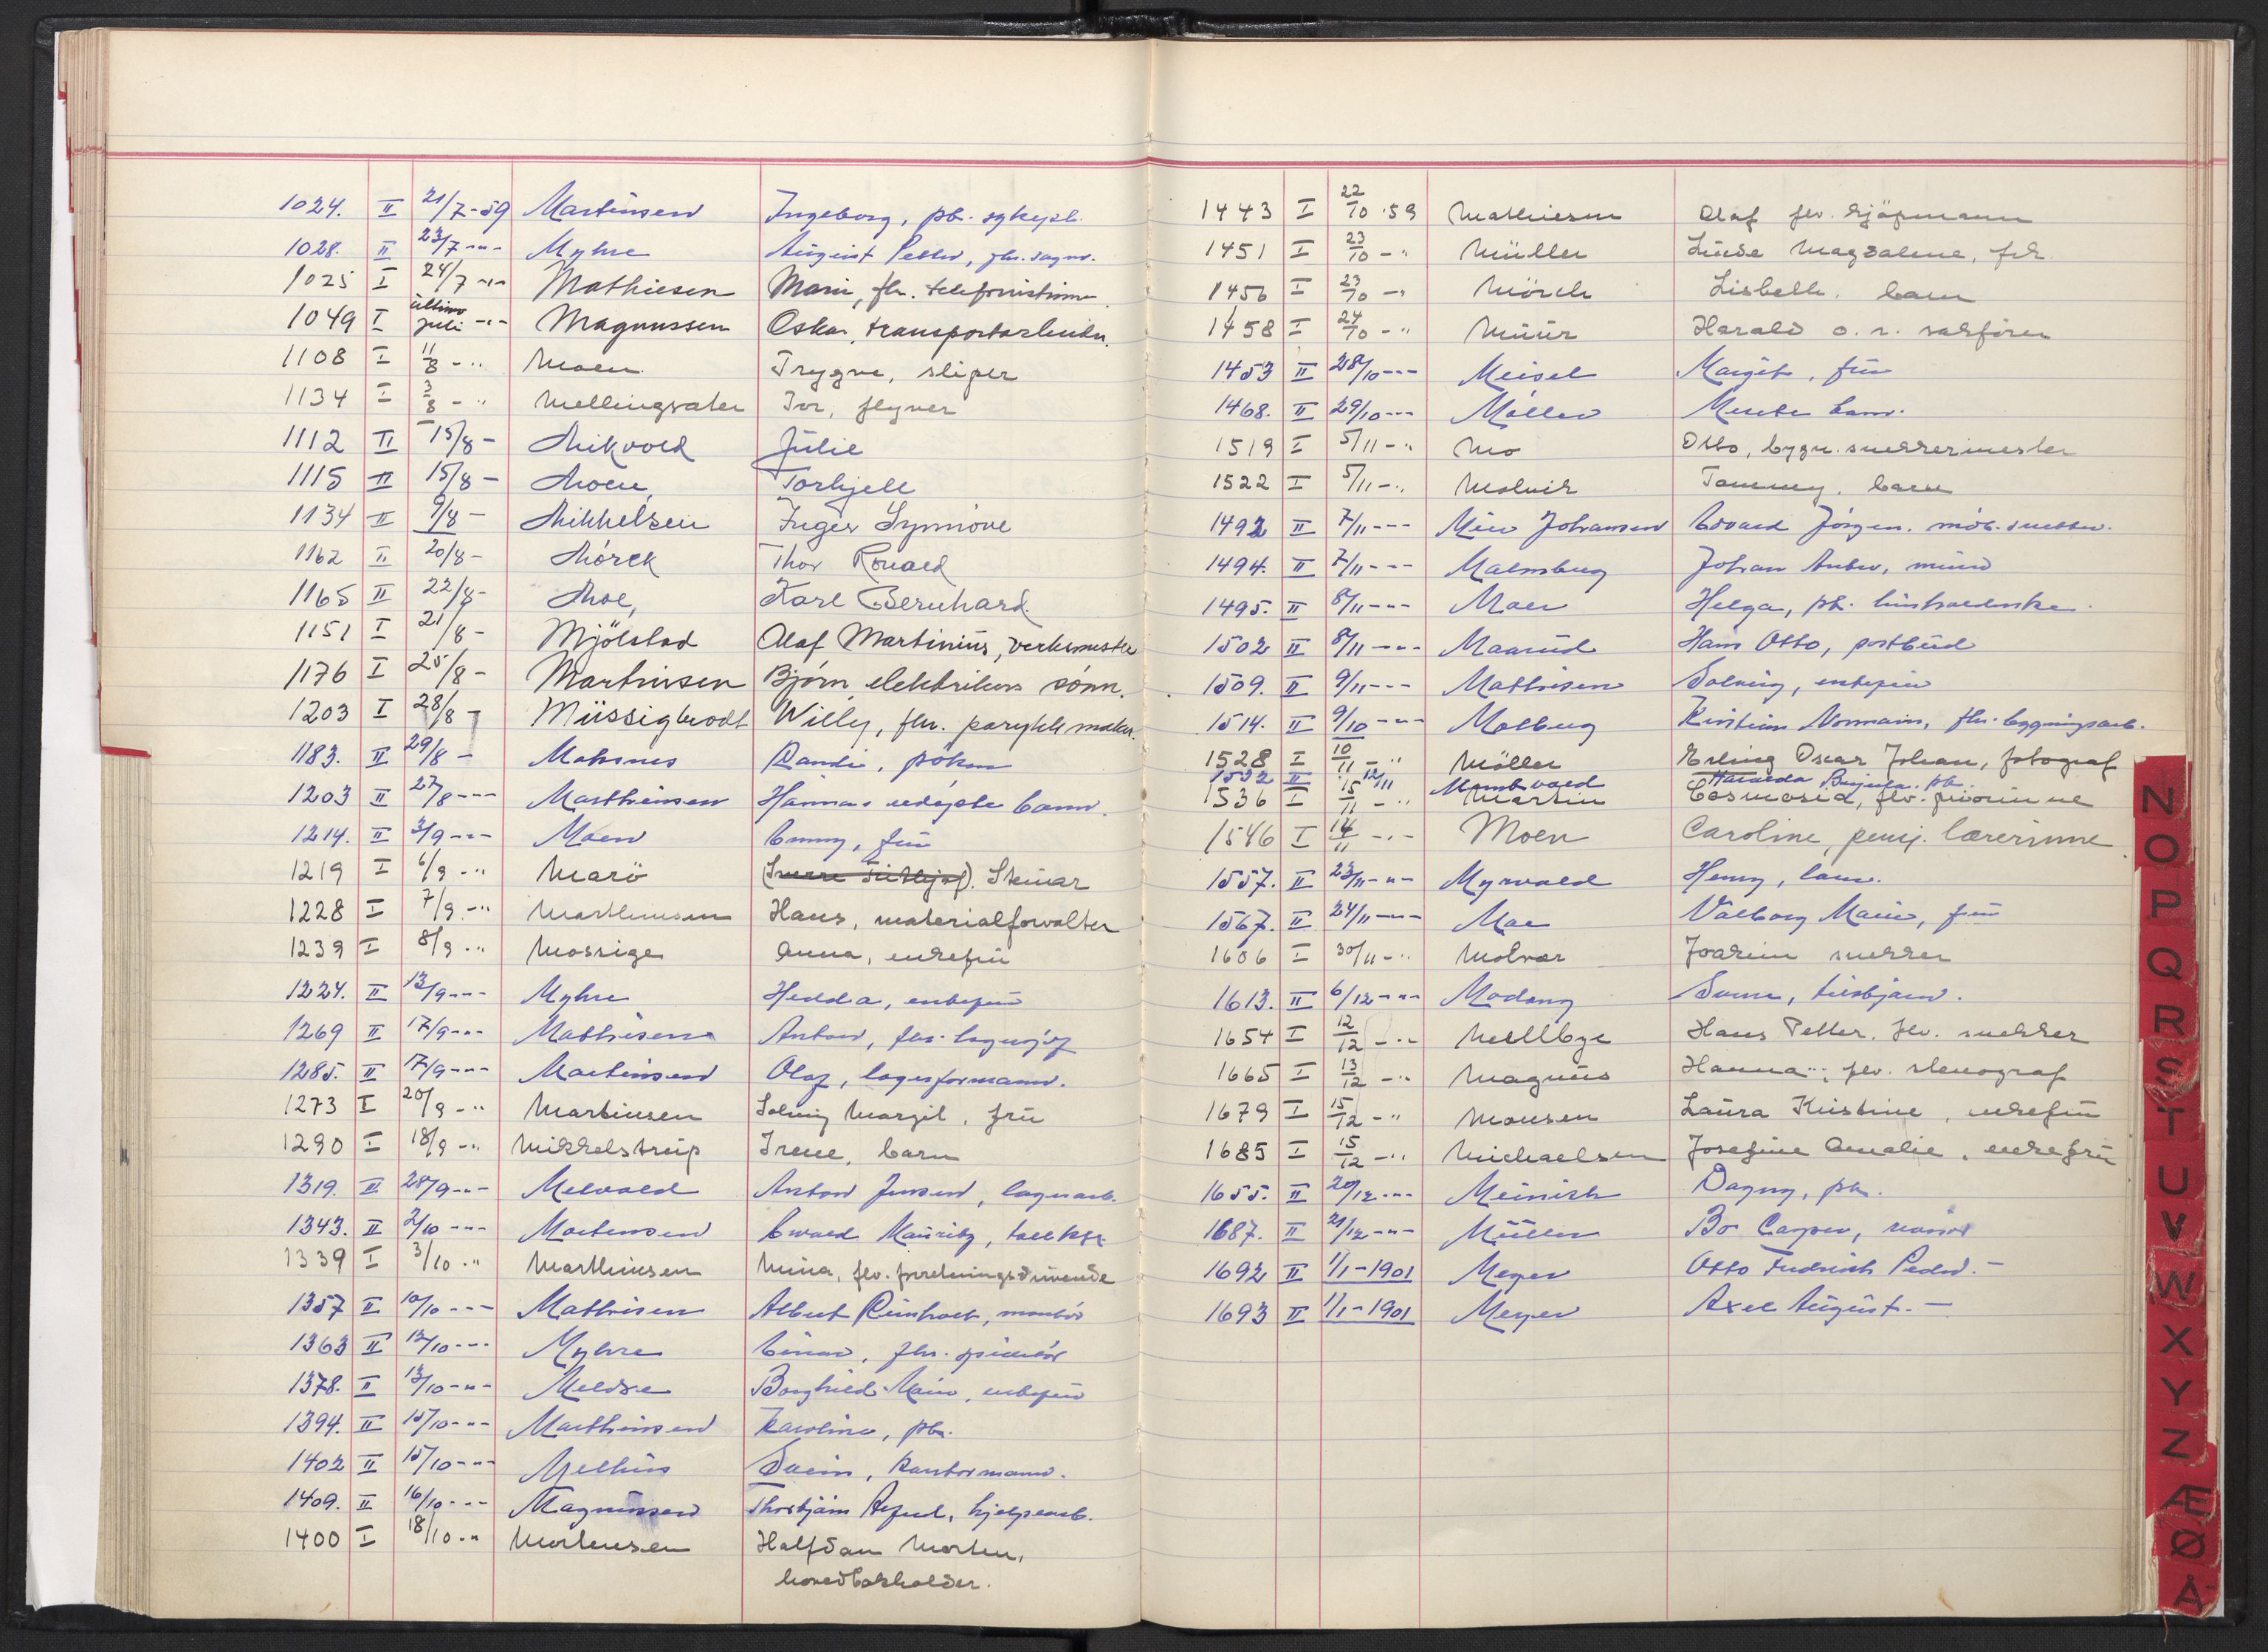 1024. II 21/7-59 Martinsen Ingeborg, pb. sykepl.
1028. II 23/7 -"- Myhre August Petter, fhv. sagm.
1025 I 24/7 -"- Mathiesen Marie, fhv. telefonistinne
1049 I ultimo juli -"- Magnussen Oskar, transportarbeider.
1108 I 11/8 - " Moen Trygve, sliper
1134 I 3/8 - " Mellingsæter Ivr, flyver
1112 II 15/8 - Mikvold Julie
1115 II 15/8 - Moen, Torkjell
1134 II 9/8 - Mikkelsen Inger Synnöve
1162 II 20/8 - Mörck Thor Ronald
1165 II 22/8 - Moe, Karl Bernhard.
1151 I 21/8 - Mjölstad Olaf Martinius, verksmester
1176 I 25/8 - Martinsen Björn, elektrikers sönn.
1203 I 28/8 - Müssigbrodt Willy, fhv. parykkmaker.
1183. II 29/8 - Mohsnes Randi, frøken
1203 II 27/8 -"- Marthinsen Hannas udøpte barn.
1214. II 3/9 -"- Moen Emmy, fru
1219 I 6/9 - " Marö Steinar
1228 I 7/9 - " Marthinsen Hans, materialforvalter
1239 I 8/9 - " Mossige Anna, enkefru
1224. II 13/9 -"- Myhre Hedda, enkefru
1269 II 17/9 -"- Mathisen Anton, fhv. lagersjef
1285. II 17/9 -"- Martinsen Olaf, lagerformann.
1273 I 20/9 - " Martinsen Solveig Margit, fru
1290 I 18/9 - " Mikkelstrup Irene, barn
1319. II 28/9 -"- Melvold Anton Jensen, lagerarb.
1343. II 2/10 -"- Mortensen Edvard Mauritz,
1339 I 3/10 " Marthinsen Mina, fhv. forretningsdrivende
1357 II 10/10 -"- Mathisen Albert Reinholt, montör
1363 II 12/10 -"- Myhre Einar, fhv.
1378. II 13/10 -"- Borghild Marie, enkefru
1394. II 15/10 -"- Marthinsen Karoline, pb.
1402 II 15/10 -"- Mjelhus Svein, kontormann.
1409. II 16/10 -"- Magnussen Thorbjörn hjelpearb.
1400 I 18/10 -" Mortensen Halfdan Morten,
hovedbokholder.
1443 I 22/10 -59 Mathiesen Olaf fhv. kjöpmann
1451 I 23/10 - " Müller Magdalene, frk.
1456 I 23/10 - " Mörch Lisbeth, barn
1458 I 24/10 - " Muur Harald o.r. sakförer
1453 II 28/10 -"- Meisel Margit, fru
1468. II 29/10 -"- Möller Merete barn.
1519 I 5/11 - " Mo Otto, bygn. snekkermester
1522 I 5/11 - " Molvik Tommy, barn
1492 II 7/11 -"- Johansen Edvard Jörgen. möb. snekker.
1494. II 7/11 -"- Malmberg Johan murer
1495. II 8/11 -"- Moen Helga, pb. husholderske.
1502 II 8/11 -"- Maarud Hans Otto, postbud
1509. II 9/11 -"- Mathisen Solveig, enkefru
1514. II 9/10 -"- Molberg Kristian Normann, fhv. bygningsarb.
1528 I 10/11 - " Möller Erling Oscar Johan, fotograf
1532 II 12/11 Munkvold Haralda pb.
1536 I 15/11 - " Martin Cosmosia, fhv. priorinne
1546 I 14/11 - " Moen Caroline, pensj. lærerinne
1557. II 23/11 -"- Myrvold Henny, barn.
1567. II 24/11 -"- Moe Valborg Marie, fru
1606 I 30/11 - " Molvær Joakim snekker
1613. II 6/12 -"- Modang
1654 I 12/12 - " Mellbye Hans Petter. fhv. snekker
1665 I 13/12 - " Magnus Hanna, fhv. stenograf
1679 I 15/12 - " Monsen Laura Kristine, enkefru
1685 I 15/12 - " Michaelsen Josefine Amalie, enkefru
1655. II 20/12 -"- Meinich Dagny, pb.
1687. II 21/12 -"- Müller Bo Casper,
1692 II 1/1-1901 Meyer Otto Fredrich Peder. -
1693 II 1/1-1901 Meyer Axel August. -
N
O
P
Q
R
S
T
U
V
W
X
Y
Z
Æ
Ø
Å